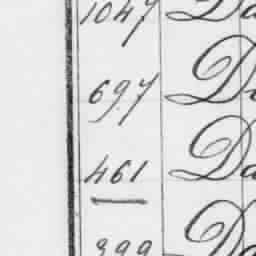 1047 Da
697 D
461 Da
399 Da